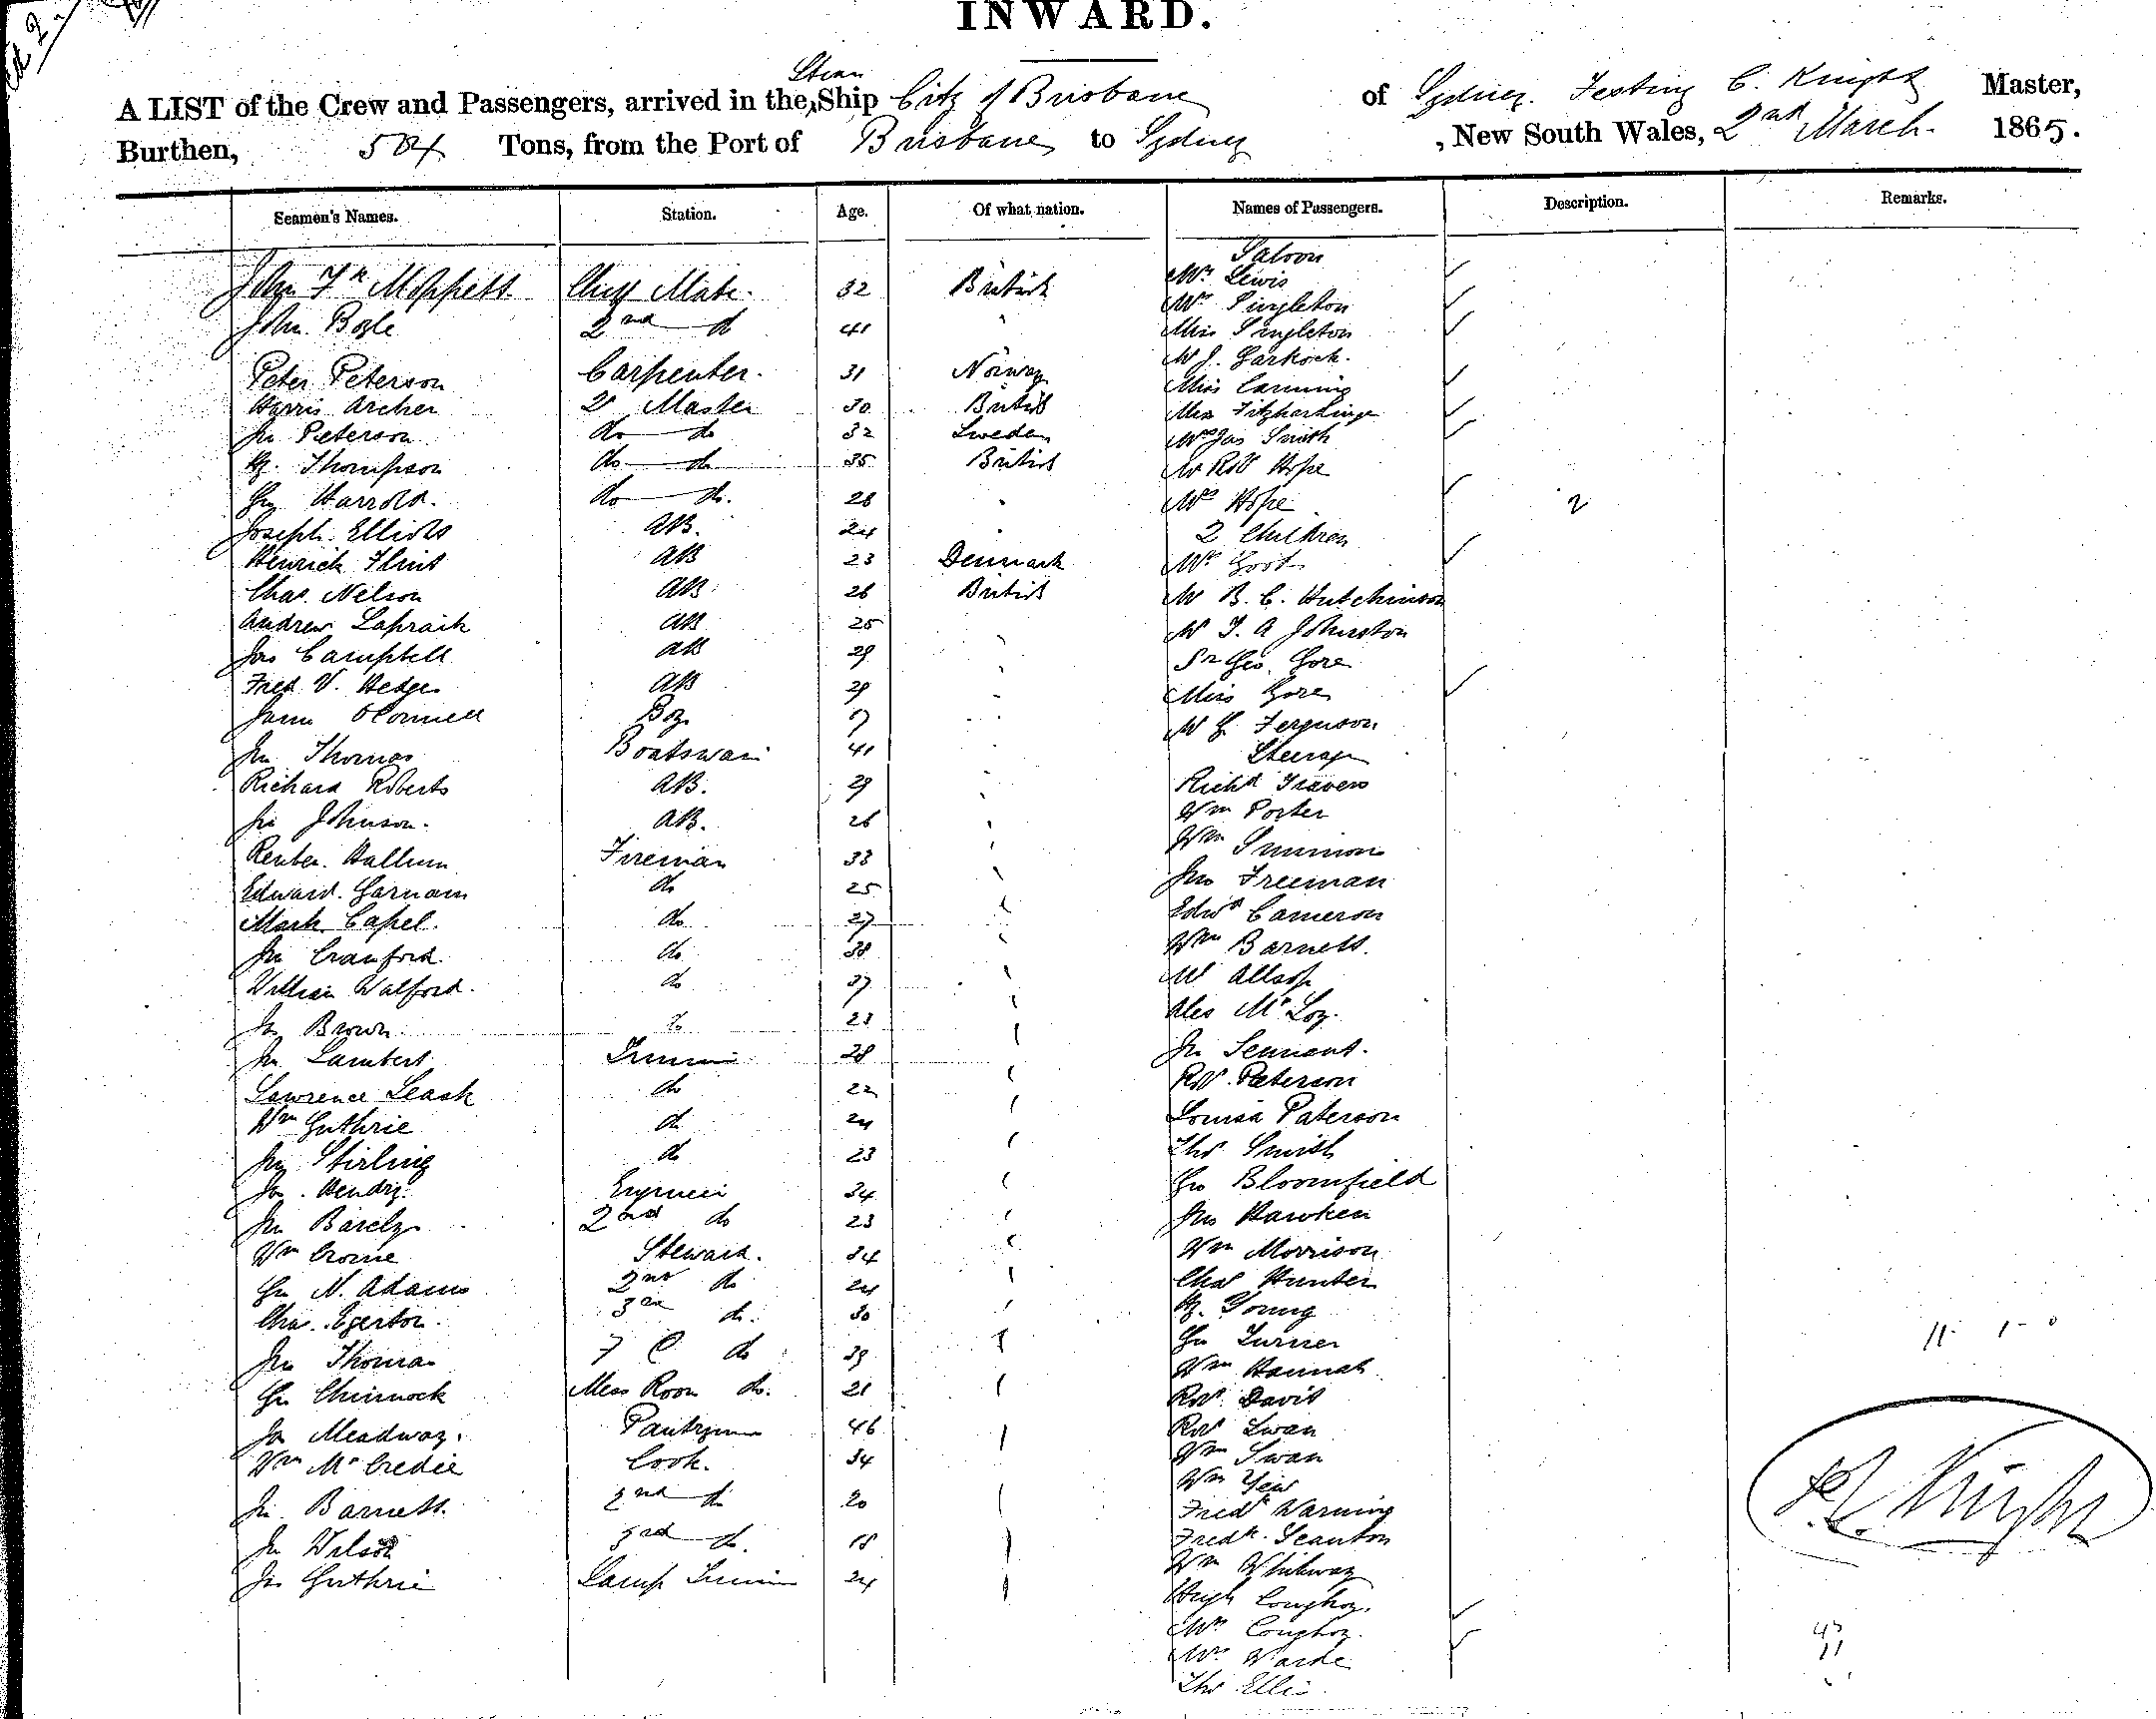 INWARD.
Steam
A LIST of the Crew and Passengers, arrived in the Ship City of Brisbane of Sydney. Festing C. Knight Master,
Burthen, 504 Tons, from the Port of Brisbane to Sydney, New South Wales, 2nd March. 1865.
Seamen's Names. Station. Age. Of what nation. Names of Passengers. Description. Remarks.
Saloon
John Fk Moppett Chief Mate. 32 British Mrs Lewis
Mrs Singleton
John Boyle 2nd do 41 Miss Singleton
Peter Peterson Carpenter. 31 Norway Miss Canning
Harris Archer 2r Master 30 British Miss Fitzhardinge
Jn Peterson do do 32 Sweden Mrs Jas Smith
Hy. Thompson do do 35 British Mr Robt Hope
Geo Harrold. do do. 28 Mrs Hope 2
Joseph Elliott AB. 24 2 Children
Henrick Flint AB 23 Denmark Mrs
Chas. Nelson AB. 26 British Mr B. C. Hutchinson
Andrew Lapraik AB 25 Mr T. A Johnston
Jas Campbell AB 29 Sr Geo. Gore
Fred V. Hedges AB 29 Miss Gore
James O'Connell Boy Mr G. Ferguson
Jn Thomas Boatswain 41 Steerage
Richard Roberts AB. 29 Richd Travers
Jn Johnson. AB. 26 Wm Porter
Reuben. Hallum Fireman 33 Wm
Edward. Garnam do 25 Jno Freeman
Mark Capel. do 27 Edwd Cameron
Jn Cranford. do 38 Wm Barnett.
William Walford. do 37 Mr Allsop
Js Brown do 23 Alex McLoy.
Jn Lambert Trimmer 28 Jn Tennant.
Lawrence Leask do 22 Robt. Paterson
Wm Guthrie do 24 Louisa Paterson
Jn Stirling do 23 Thos Smith
Jas. Hendry. Engineer 34 Geo Bloomfield
Jn Barclay 2nd do 23 Jno Hawken
Wm Crome Steward. 34 Wm Morrison
Geo N. Adams 2nd do 24 Chas Hunter
Chas. Egerton. 3rd do. 30 Hy. Young
Jn Thomas F C do 39 Geo Turner
Wm Hannah
Geo Chinnock Mess Room do. 21 Robt. Davis
Jas Meadway. Pantryman 46 Robt Swan
Wm McCredie Cook. 34 Wm Swan
Wm Yew
Jn Barnett. 2nd do 20 Fredk Warning
Jn Wilson 3rd do. 18 Fredk. Scanton
Wm Whiteway
Jas Guthrie Lamp Trimmer 24 Hugh Coughoy.
Mrs Coughoy.
Mrs Warde
Thos Ellis.